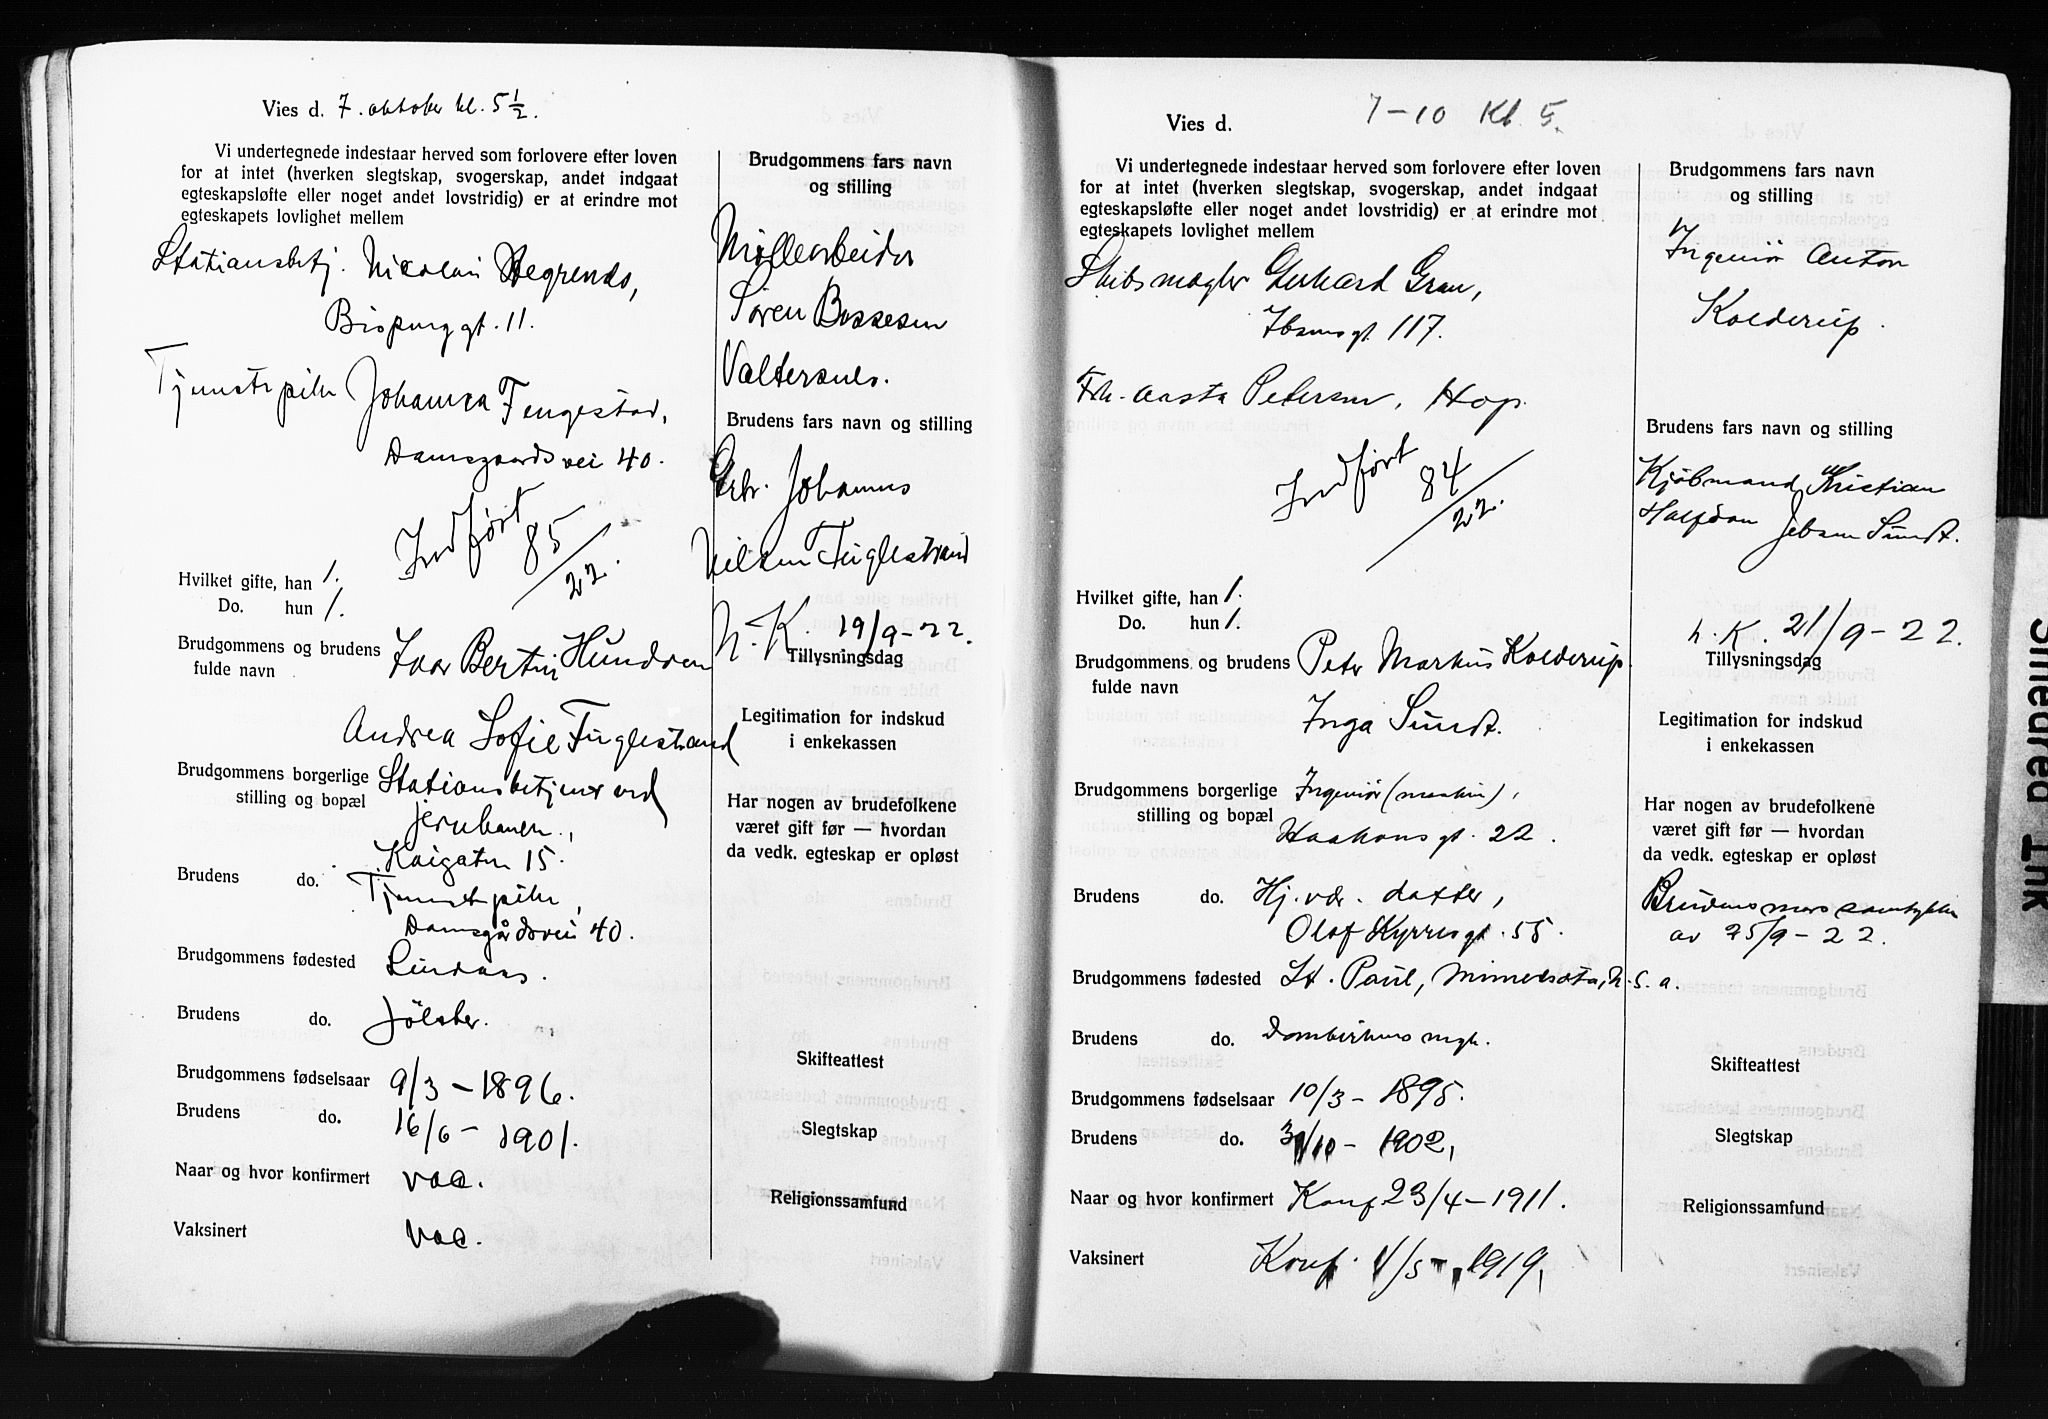 Vies d. 7. oktober kl. 5 1/2.
Vi undertegnede indestaar herved som forlovere efter loven
for at intet (hverken slegtskap, svogerskap, andet indgaat
egteskapsløfte eller noget andet lovstridig) er at erindre mot
egteskapets lovlighet mellem
Stationsbetj. Nicolai
11.
Johanna
Damsgaardsvei 40.
Indført 85/22.
Hvilket gifte, han 1.
Do. hun 1.
Brudgommens og brudens
fulde navn
Ivar Bertin
Andrea Sofie Fuglestrand
Brudgommens borgerlige
stilling og bopæl
Stationsbetjent ved
jernbanen,
Kaigaten 15.
Brudens do.
Damsgårdsvei 40.
Brudgommens fødested Lindaas.
Brudens do. Jölster.
Brudgommens fødselsaar 9/3 – 1896.
Brudens do. 16/6 – 1901.
Naar og hvor konfirmert vac.
Vaksinert vac.
Brudgommens fars navn
og stilling
Møllearbeider
Søren
Brudens fars navn og stilling
Johannes
Nilsen Fuglestrand
N. K. 19/9-22.
Tillysningsdag
Legitimation for indskud
i enkekassen
Har nogen av brudefolkene
været gift før — hvordan
da vedk. egteskap er opløst
Skifteattest
Slegtskap
Religionssamfund
Vies d. 7-10 Kl. 5.
Vi undertegnede indestaar herved som forlovere efter loven
for at intet (hverken slegtskap, svogerskap, andet indgaat
egteskapsløfte eller noget andet lovstridig) er at erindre mot
egteskapets lovlighet mellem
Skibsmægler Gerhard Gran,
Ibsensgt. 117.
Frk. Aasta Petersen, Hop.
Indført 84/22.
Hvilket gifte, han 1.
Do. hun 1.
Brudgommens og brudens
fulde navn
Peter Markus Kolderup.
Inga Sundt.
Brudgommens borgerlige
stilling og bopæl
Ingeniør (maskin),
Haakonsgt. 22.
Brudens do. Hj.vær. datter,
Olaf Kyrresgt. 55.
Brudgommens fødested St. Paul, Minnesota, U.S.a.
Brudens do.
Brudgommens fødselsaar 10/3 – 1895.
Brudens do. /10 – 1902,
Naar og hvor konfirmert Konf 23/4 – 1911.
Vaksinert Konf. 1919,
Brudgommens fars navn
og stilling
Ingeniør Anton
Kolderup.
Brudens fars navn og stilling
Kjøbmand Kristian
Halfdan Jebsen Sundt.
N. K. 21/9-22.
Tillysningsdag
Legitimation for indskud
i enkekassen
Har nogen av brudefolkene
været gift før — hvordan
da vedk. egteskap er opløst
Brudens mors samtykke
av 25/9-22.
Skifteattest
Slegtskap
Religionssamfund